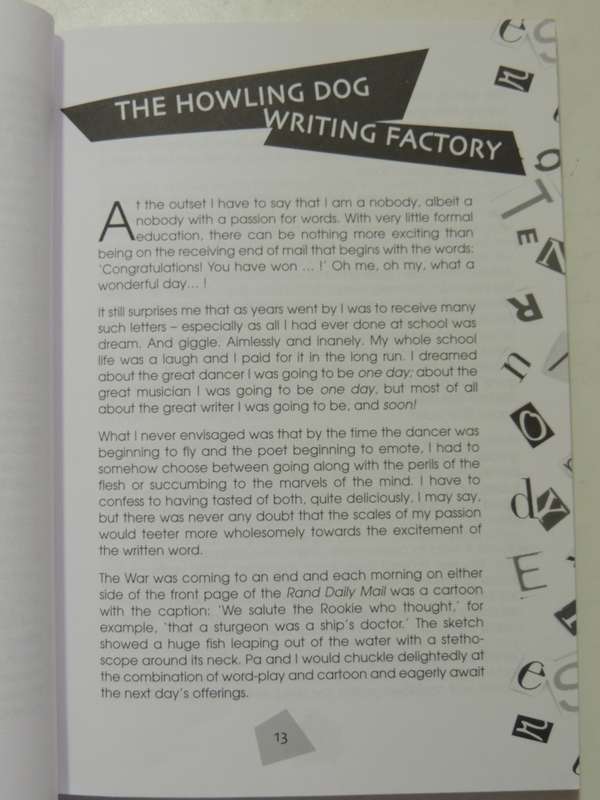 THE HOWLING DOG
WRITING FACTORY
At the outset I have to say that I am a nobody, albeit a
nobody with a passion for words. With very little formal
education, there can be nothing more exciting than
being on the receiving end of mail that begins with the words:
‘Congratulations! You have won … !’ Oh me, oh my, what a
wonderful day… !
It still surprises me that as years went by I was to receive many
such letters – especially as all I had ever done at school was
dream. And giggle. Aimlessly and inanely. My whole school
life was a laugh and I paid for it in the long run. I dreamed
about the great dancer I was going to be one day; about the
great musician I was going to be one day, but most of all
about the great writer I was going to be, and soon!
What I never envisaged was that by the time the dancer was
beginning to fly and the poet beginning to emote, I had to
somehow choose between going along with the perils of the
flesh or succumbing to the marvels of the mind. I have to
confess to having tasted of both, quite deliciously, I may say,
but there was never any doubt that the scales of my passion
would teeter more wholesomely towards the excitement of
the written word.
The War was coming to an end and each morning on either
side of the front page of the Rand Daily Mail was a cartoon
with the caption: ‘We salute the Rookie who thought,’ for
example, ‘that a sturgeon was a ship’s doctor.’ The sketch
showed a huge fish leaping out of the water with a stetho-
scope around its neck. Pa and I would chuckle delightedly at
the combination of word-play and cartoon and eagerly await
the next day’s offerings.
13